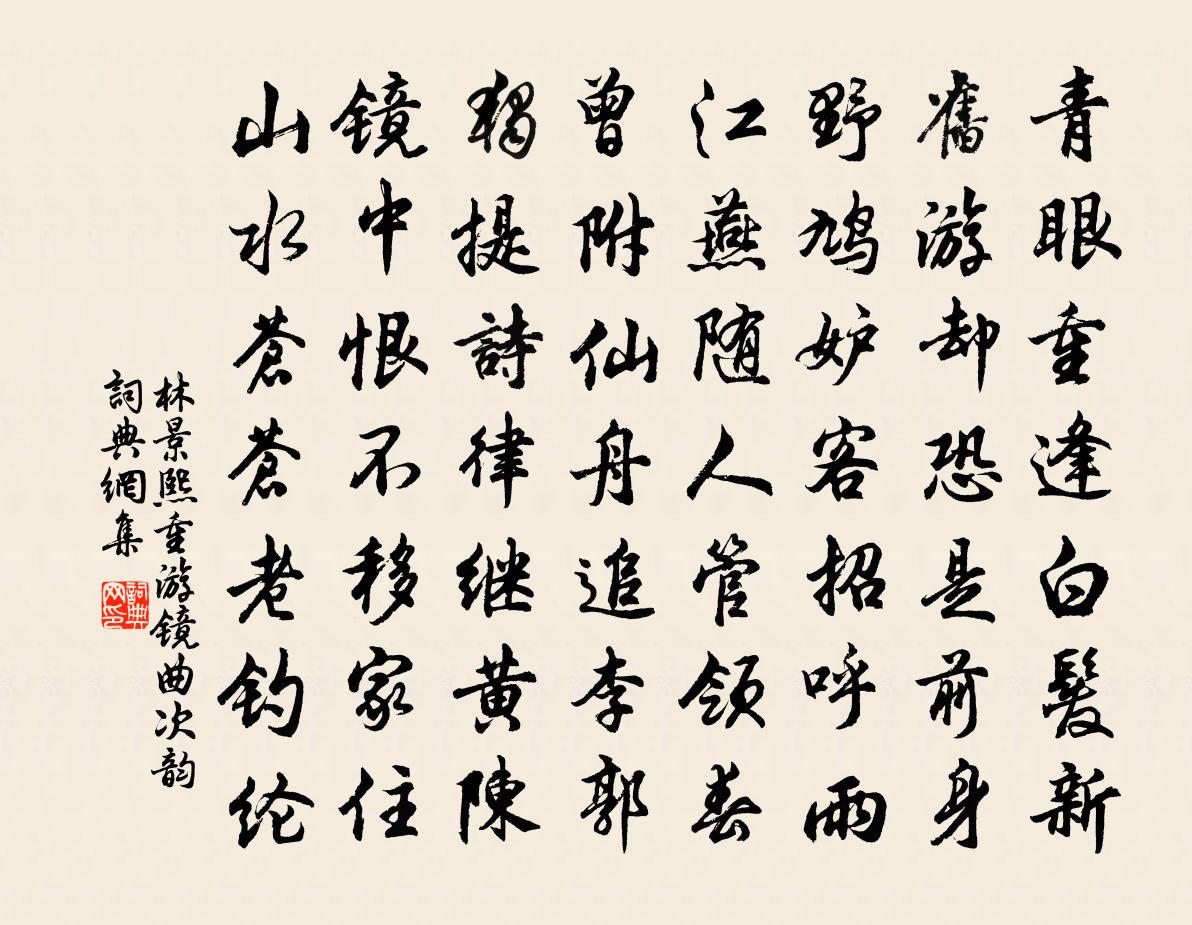 青眼重逢白髮新
舊游却恐是前身
野鸠妒客招呼雨
江燕随人管领春
曾附仙舟追李郭
獨提詩律继黄陳
镜中恨不移家住
山水蒼蒼老钓纶
林景熙重游镜曲次韵
詞典網集
詞典网印